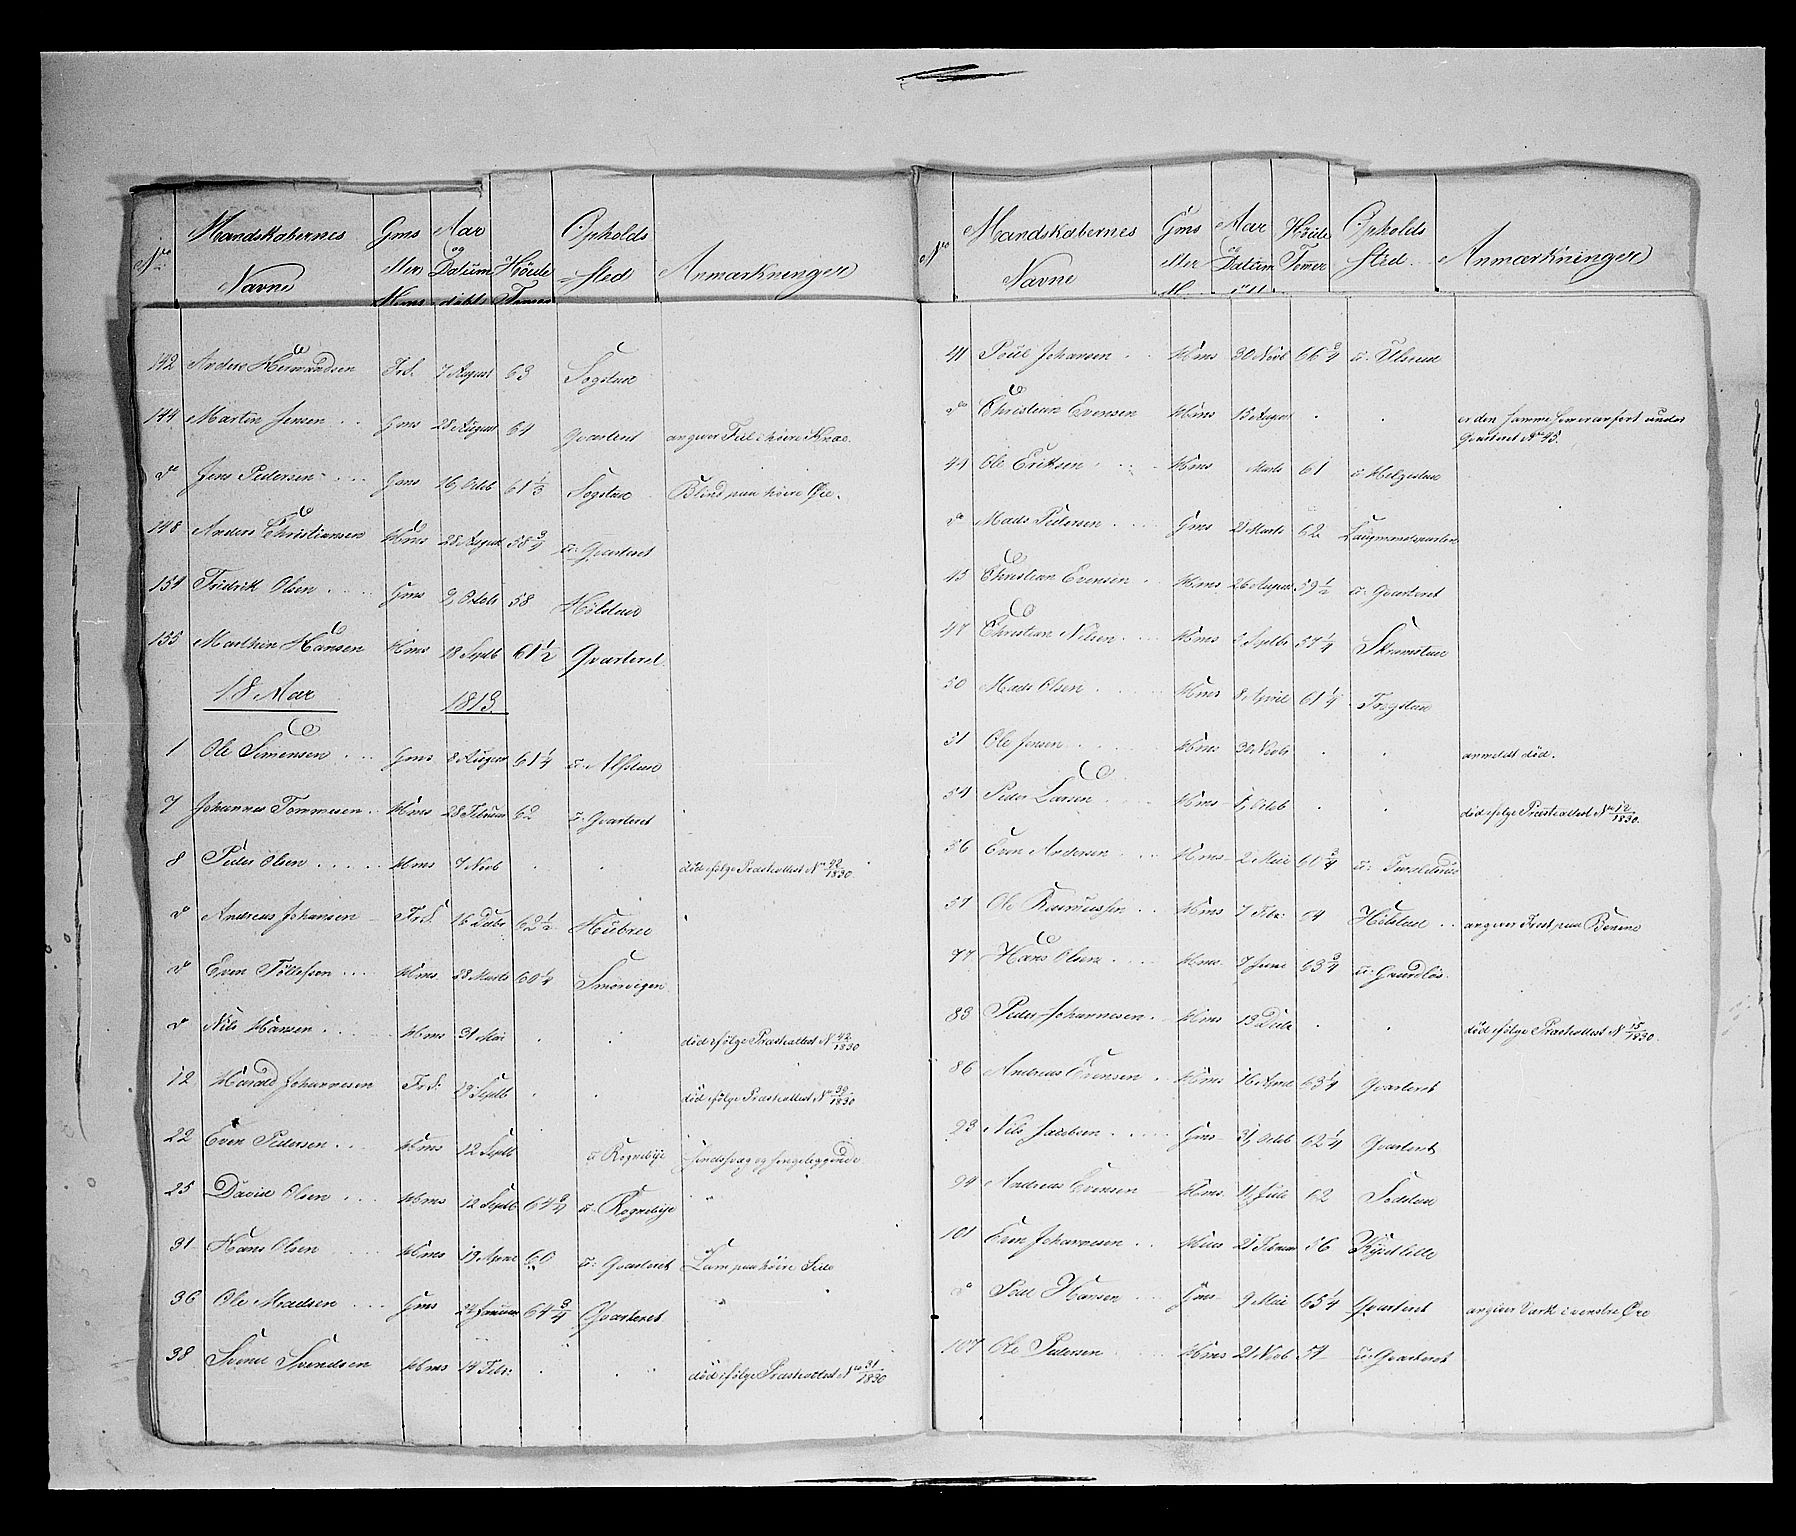 No Mandskabernes Gms Aar Opholds
Navne Mer og Datum Höide Sted Anmærkninger
142 Anders Hermandsen Frd. 7 August 63 Sogstad
144 Martin Jensen Gms 28 August 64 Qvarteret angiver Feil i høire Knæ.
do Jens Pedersen Gms 16 Octob 61 1/3 Sogstad Blind paa høire Øie.
148 Anders Christiansen Hms 28 August 58 3/4 u: Qvarteret
154 Fredrik Olsen Gms 2 Octob 58 Holstad
155 Mathias Hansen Hms 18 Septb 61 1/2 Qvarteret
18 Aar 1813.
1 Ole Simensen Gms 8 August 61 1/4 u: Alfstad
7 Johannes Tommesen Hms 28 Februar 62 u: Qvarteret
8 Peder Olsen Hms 7 Novb . . död ifølge Præsteattest No 42/1830.
do Andreas Johansen Frd. 16 Decbr 62 1/2 Hubred
do Even Tollefsen Hms 23 Marts 60 1/4 Smörvigen
do Nils Hansen Hms 31 Mai . . död ifølge Præsteattest No 42/1830
12 Harald Johannesen Frd: 13 Septb . . död ifølge Præsteattest No 39/1830
22 Even Pedersen Hms 12 Septb u: Rognebye sindssvag og sengeliggende
25 David Olsen Hms 12 Septb 64 3/4 u: Rognebye
31 Hans Olsen Hms 19 April 60 u: Qvarteret Lam paa høire Side
36 Ole Madsen Gms 24 Januar 64 3/4 Qvarteret
38 Svend Svendsen Hms 14 Febr: . . död ifølge Præsteattest No 31/1830
No Mandskabernes Gms Aar Höide Opholds
Navne Mer og Datum Tommer Sted Anmærkninger
41 Poul Johansen Hms 30 Novb 66 3/4 u: Ulsrud
do Christian Evensen Hms 15 August . . er den samme som er anført under
Qvarteret No 45.
44 Ole Eriksen Hms Marts 61 u: Helgestad
do Mads Pedersen Gms 21 Marts 62 Laugmandsparten
45 Christian Evensen Hms 26 August 59 1/2 u: Qvarteret
47 Christian Nilsen Hms 5 Septbr 57 1/4 Skramstad
50 Mads Olsen Hms 8 April 61 1/4 Frogstad
51 Ole Jensen Hms 30 Novb . . anmeldt död.
54 Peder Larsen Hms Octob . . död ifølge Præsteattest No 12/1830.
56 Even Andersen Hms 2 Mai 61 3/4 u:
57 Ole Rasmussen Hms 7 Febr: 64 Holstad angiver Frost paa Benene
77 Hans Olsen Hms 7 Juni 63 3/4 u: Grundløs
83 Peder Johannesen Hms 13 Decb . . död ifølge Præsteattest No 15/1830.
86 Andreas Evensen Hms 16 April 63 1/4 Qvarteret
93 Nils Jacobsen Gms 31 Octob 62 1/4 Qvarteret
94 Andreas Evensen Hms 11 Juli 62
101 Even Johannesen Hms 21 Februar 56
do Poul Hansen Gms 9 Mai 65 1/4 Qvarteret angiver Værk i venstre Øie
107 Ole Pedersen Hms 21 Novb 54 u: Qvarteret